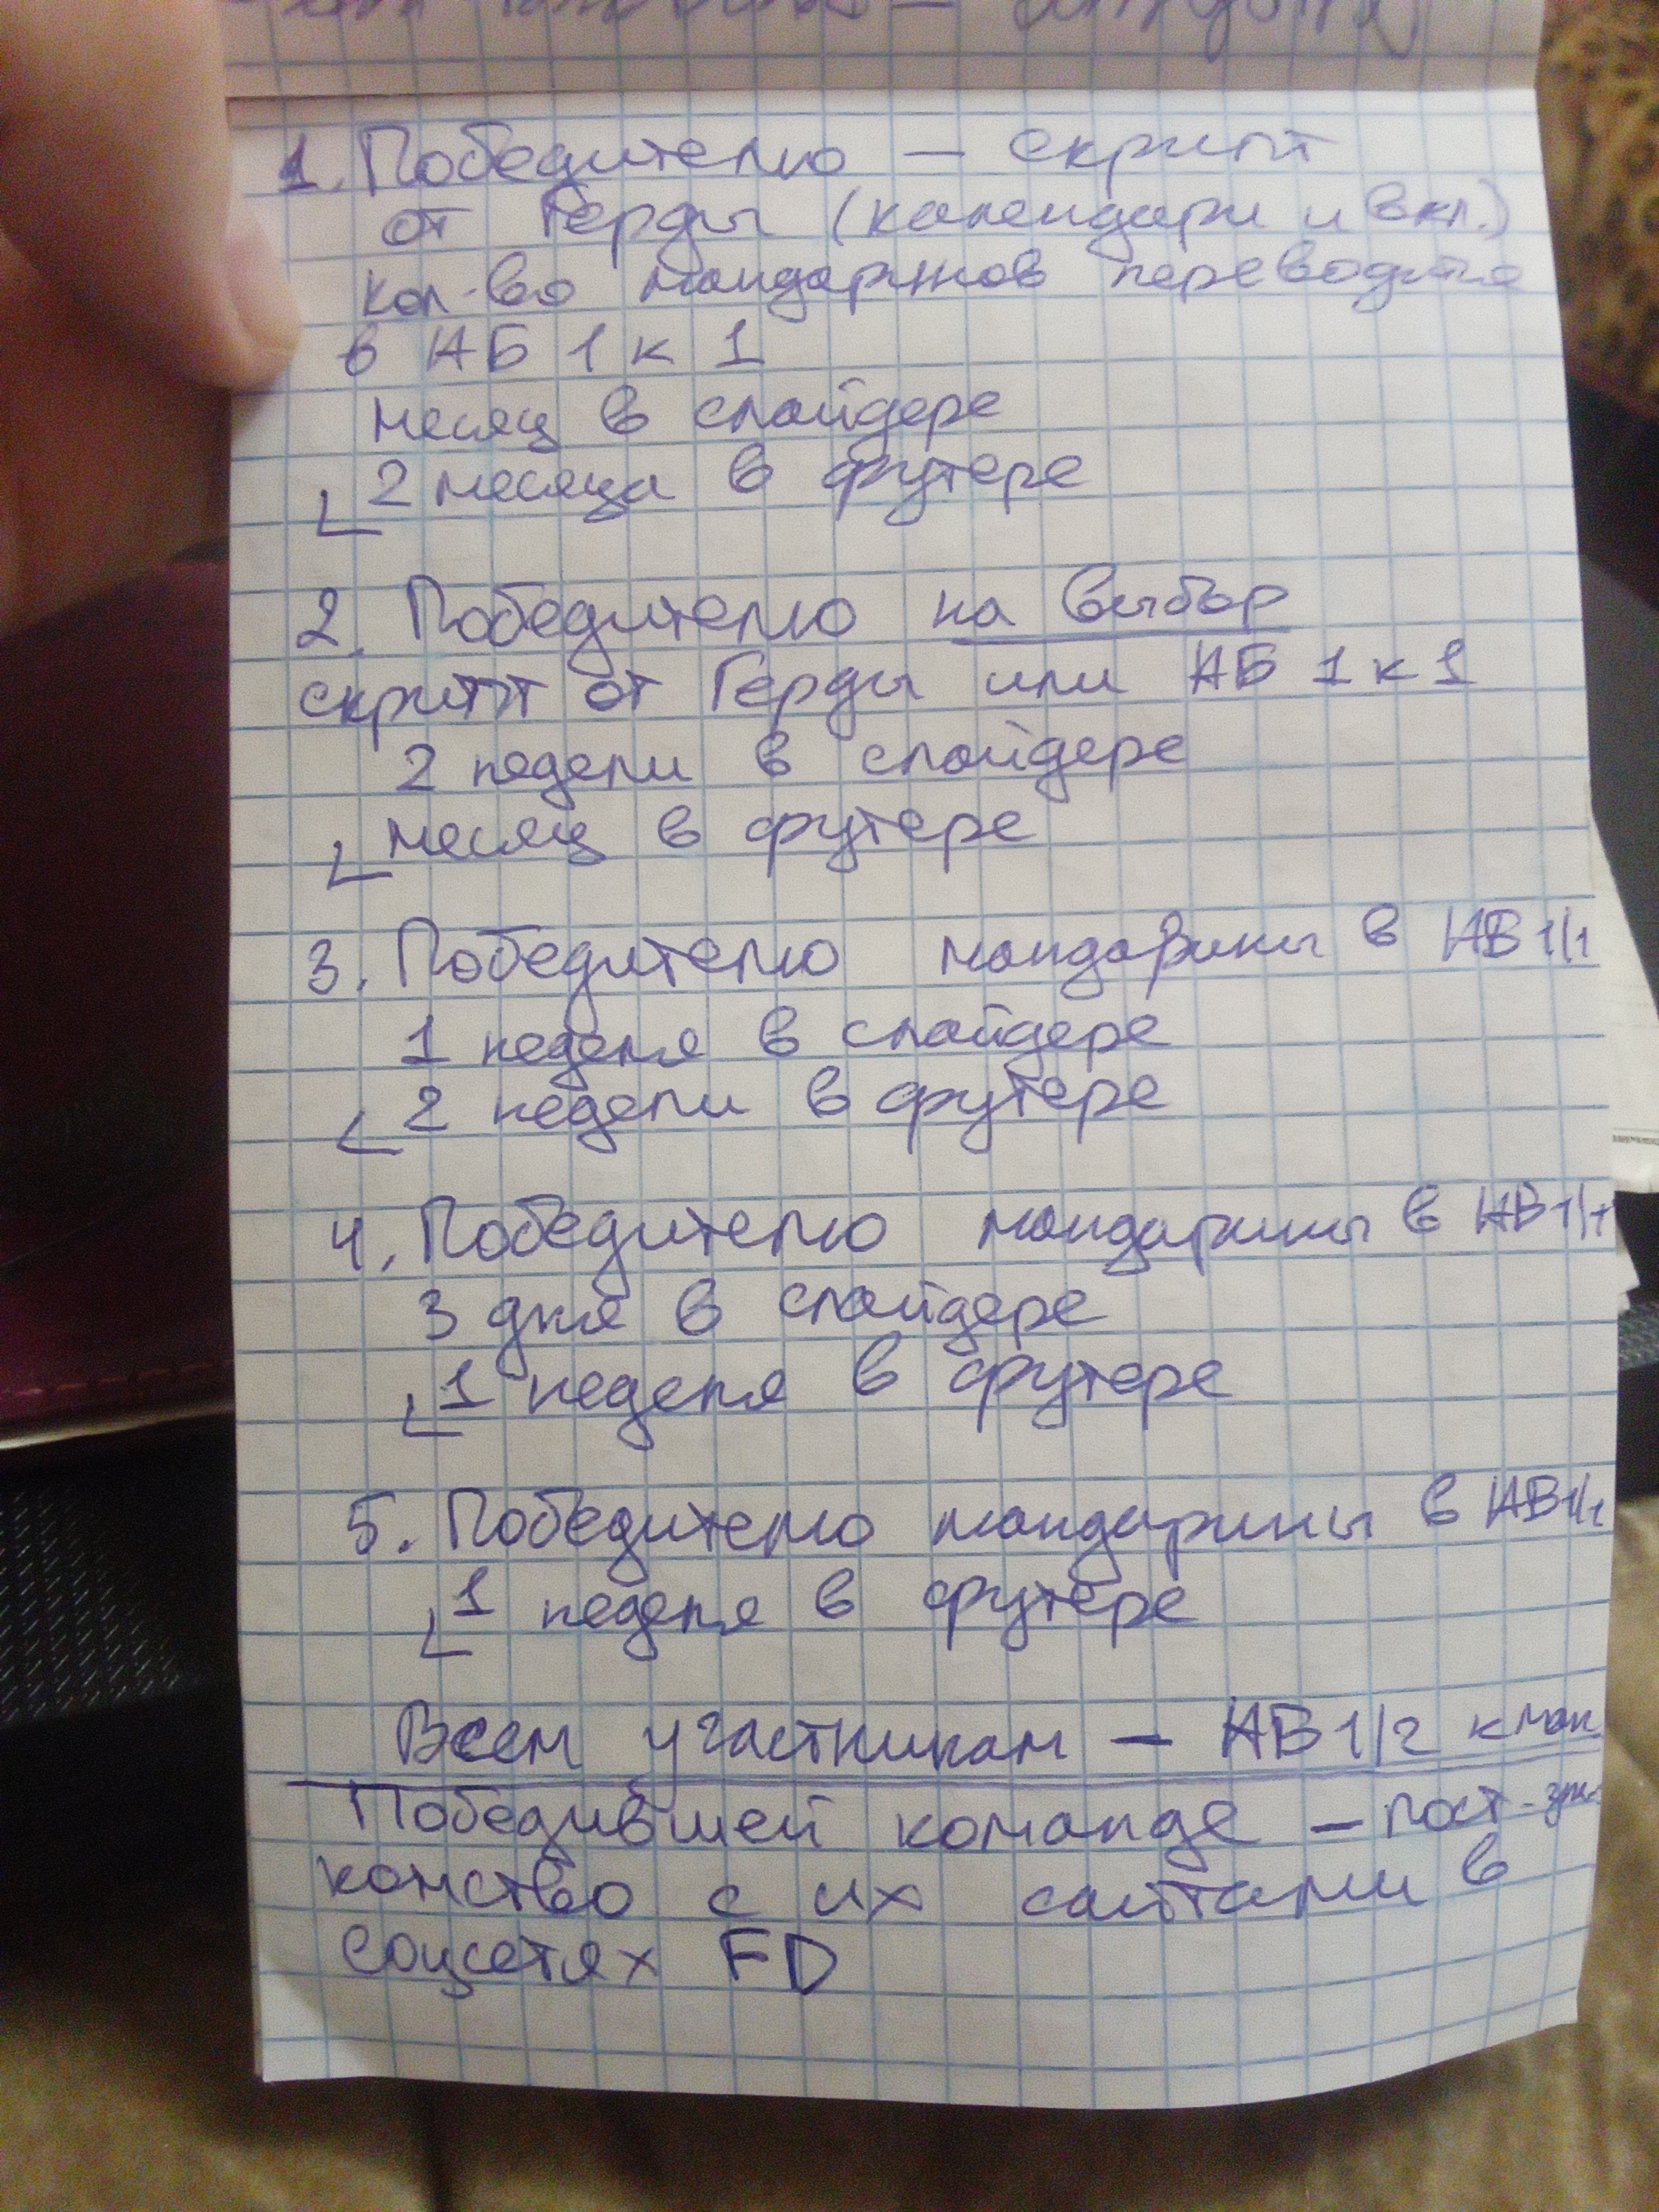 1. Победителю — скрипт
от Герды (календари и вкл.)
кол-во мандаринов переводится
в АБ 1 к 1
месяц в слайдере
2 месяца в футере
2. Победителю на выбор
скрипт от Герды или АБ 1 к 1
2 недели в слайдере
месяц в футере
3. Победителю мандарины в АВ 1/1
1 неделя в слайдере
2 недели в футере
4. Победителю мандарины в АВ 1/1
3 дня в слайдере
1 неделя в футере
5. Победителю мандарины в АВ 1/1
1 неделя в футере
Всем участникам — АВ 1/2 к ман
Победившей команде — пост-зна
комство с их сайтами в
соцсетях FD